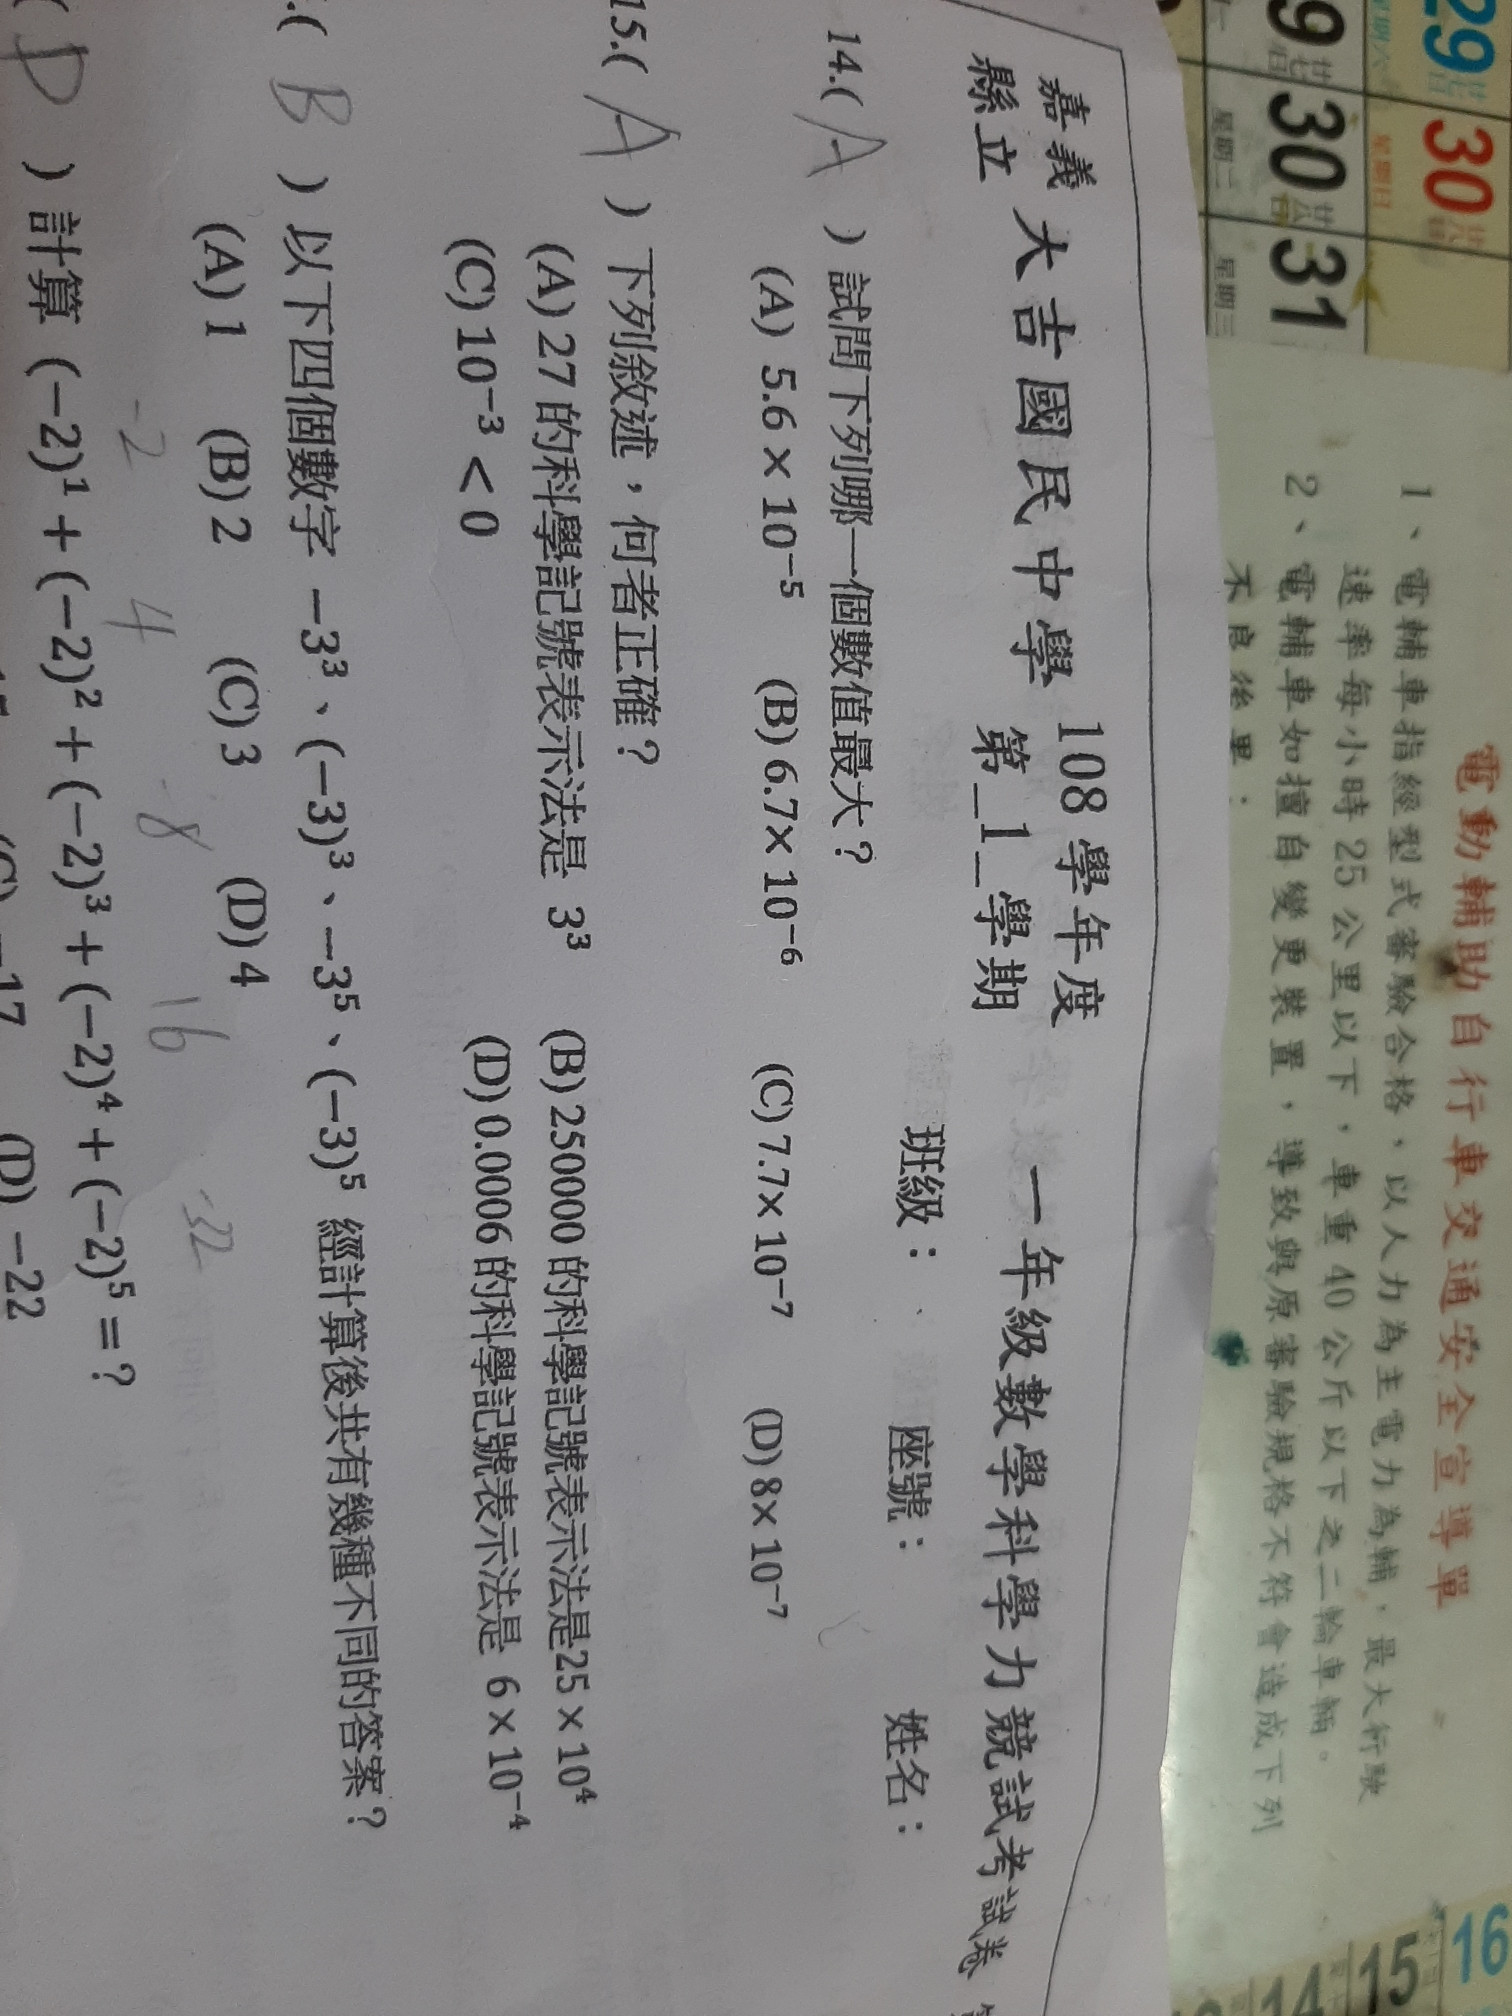 嘉義縣立 大吉國民中學 108學年度第_1_學期 一年級數學科學力競試考試卷
班級： 座號： 姓名：
14.( A ) 試問下列哪一個數值最大？
(A) 5.6 × 10⁻⁵ (B) 6.7× 10⁻⁶ (C) 7.7× 10⁻⁷ (D) 8× 10⁻⁷
15.( A ) 下列敘述，何者正確？
(A) 27 的科學記號表示法是 3³ (B) 250000 的科學記號表示法是25 × 10⁴
(C) 10⁻³ < 0 (D) 0.0006 的科學記號表示法是 6 × 10⁻⁴
.( B ) 以下四個數字 −3³、(−3)³、−3⁵、(−3)⁵ 經計算後共有幾種不同的答案？
(A) 1 (B) 2 (C) 3 (D) 4
-2 4 -8 16 -32
( D ) 計算 (−2)¹ + (−2)² + (−2)³ + (−2)⁴ + (−2)⁵ = ?
(C) −17 (D) −22
電動輔助自行車交通安全宣導單
1、電輔車指經型式審驗合格，以人力為主電力為輔，最大行駛
速率每小時 25 公里以下，車重 40 公斤以下之二輪車輛。
2、電輔車如擅自變更裝置，導致與原審驗規格不符會造成下列
不良後果：
29 30
星期六 星期日
9 30 31
星期二 星期三
14 15 16